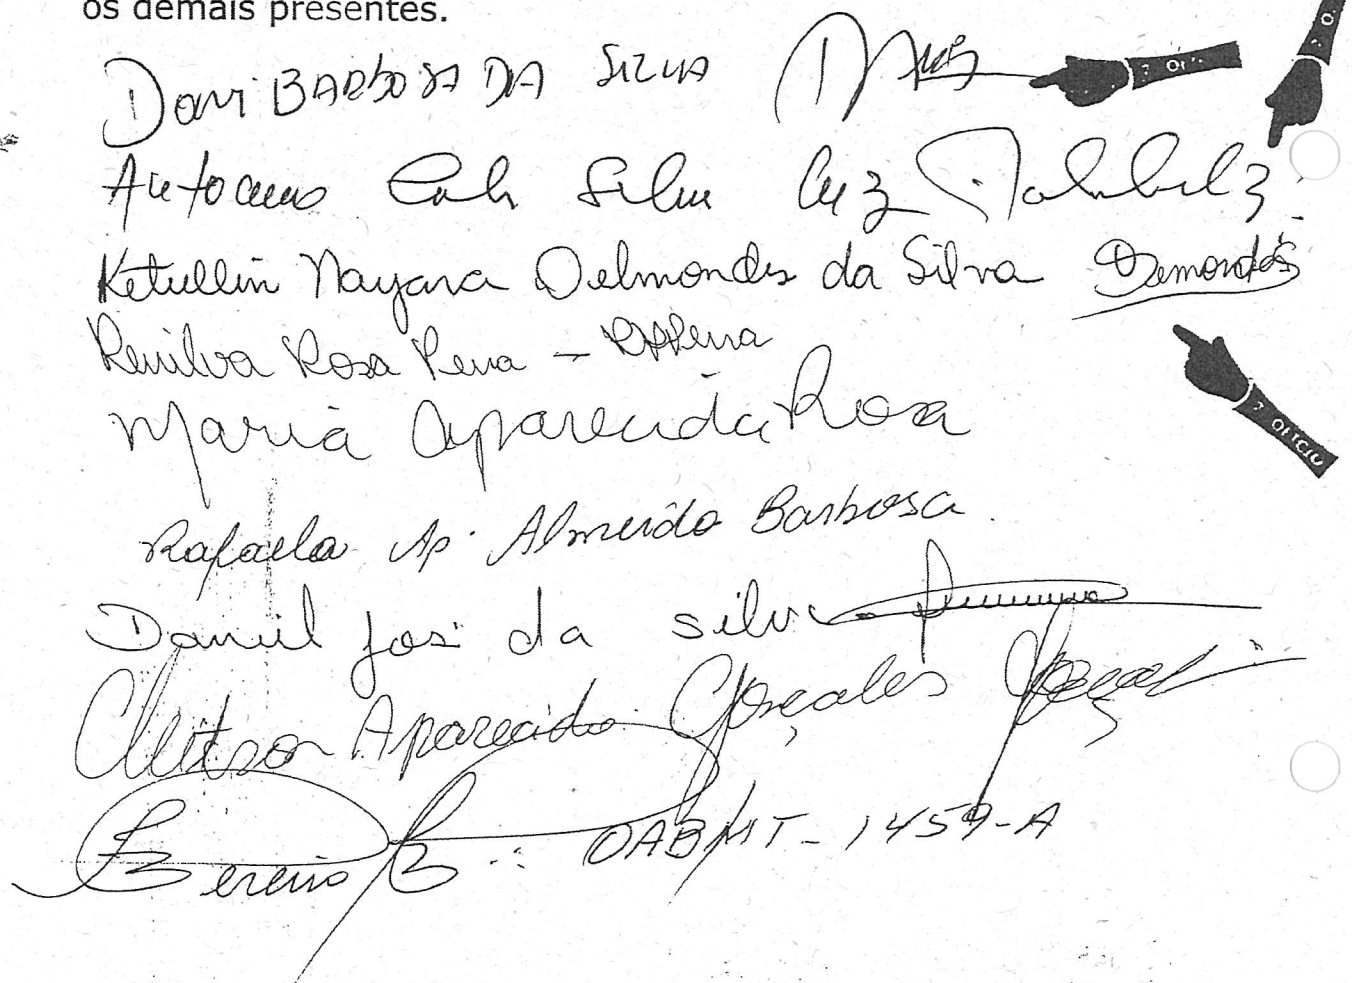 os demais presentes.
Davi BARBOSA DA SILVA
Silva Luz
Ketullin Nayara Delmondes da Silva Demondes
Renilva Rosa Pena - RRPena
Maria Aparecida Rosa
Rafaela Ap. Almeida Barbosa
Daniel José da Silva
Cleitson Aparecido Gonçales
OAB/MT - 1459-A
7 OFICIO